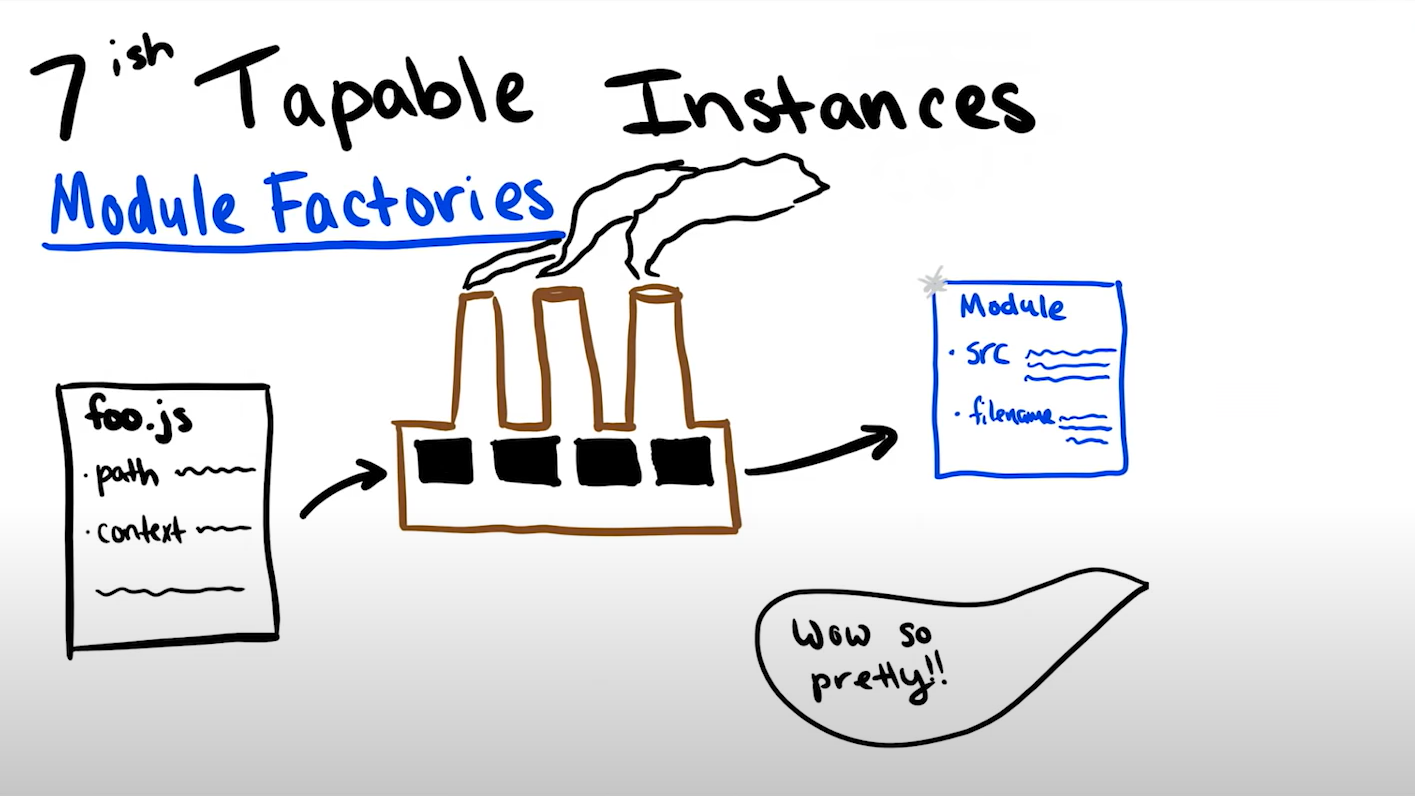 7ish Tapable Instances
Module Factories
foo.js
· path
· context
Module
· src
· filename
Wow so
pretty!!